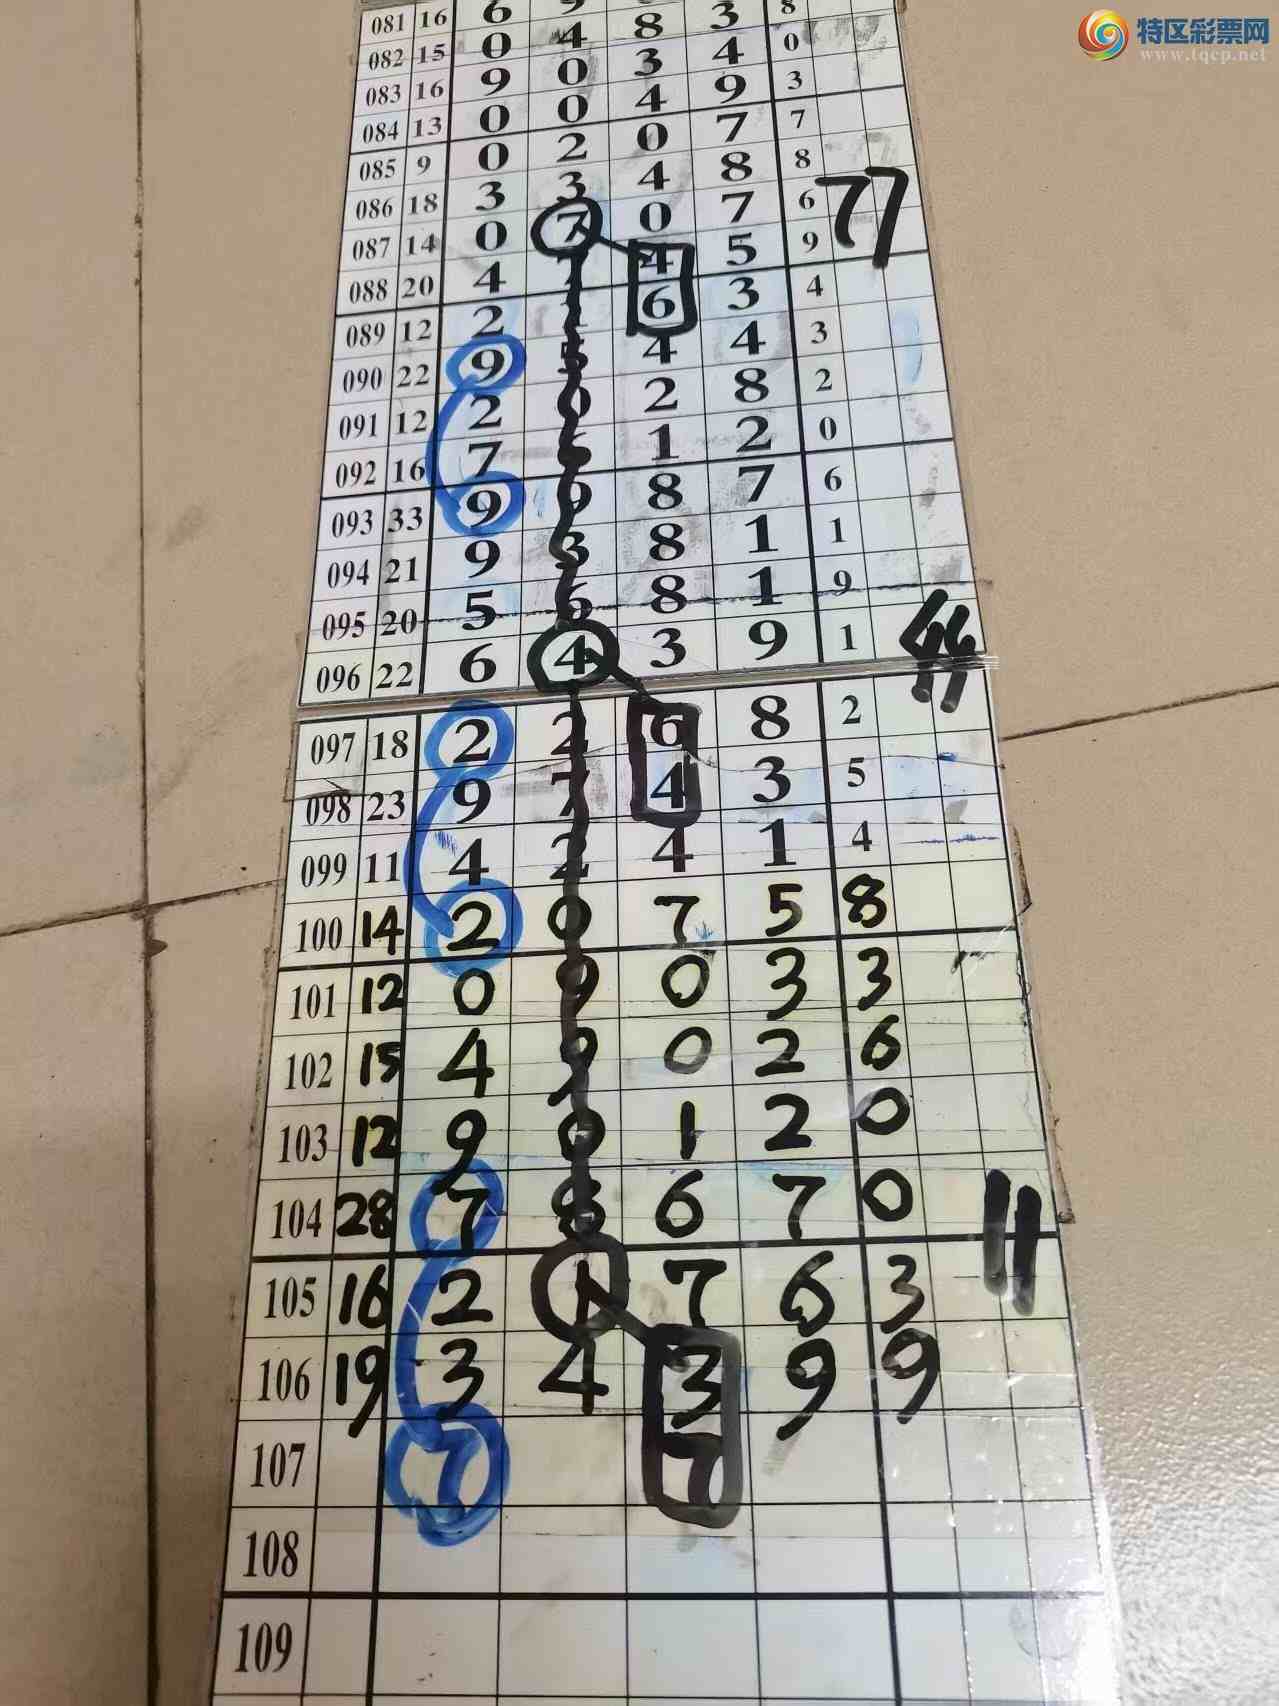 特区彩票网
www.tqcp.net
081 16 6 9
082 15 0 4 8 3 8
083 16 9 0 3 4 0
084 13 0 0 4 9 3
085 9 0 2 0 7 7
086 18 3 3 4 8 8
087 14 0 7 0 7 6 77
088 20 4 7 4 5 9
089 12 2 1 6 3 4
090 22 9 5 4 4 3
091 12 2 0 2 8 2
092 16 7 6 1 2 0
093 33 9 9 8 7 6
094 21 9 3 8 1 1
095 20 5 6 8 1 9
096 22 6 4 3 9 1 44
097 18 2 2 6 8 2
098 23 9 7 4 3 5
099 11 4 2 4 1 4
100 14 2 0 7 5 8
101 12 0 9 0 3 3
102 15 4 9 0 2 6
103 12 9 0 1 2 0
104 28 7 8 6 7 0
105 16 2 1 7 6 3 11
106 19 3 4 3 9 9
107 7 7
108
109